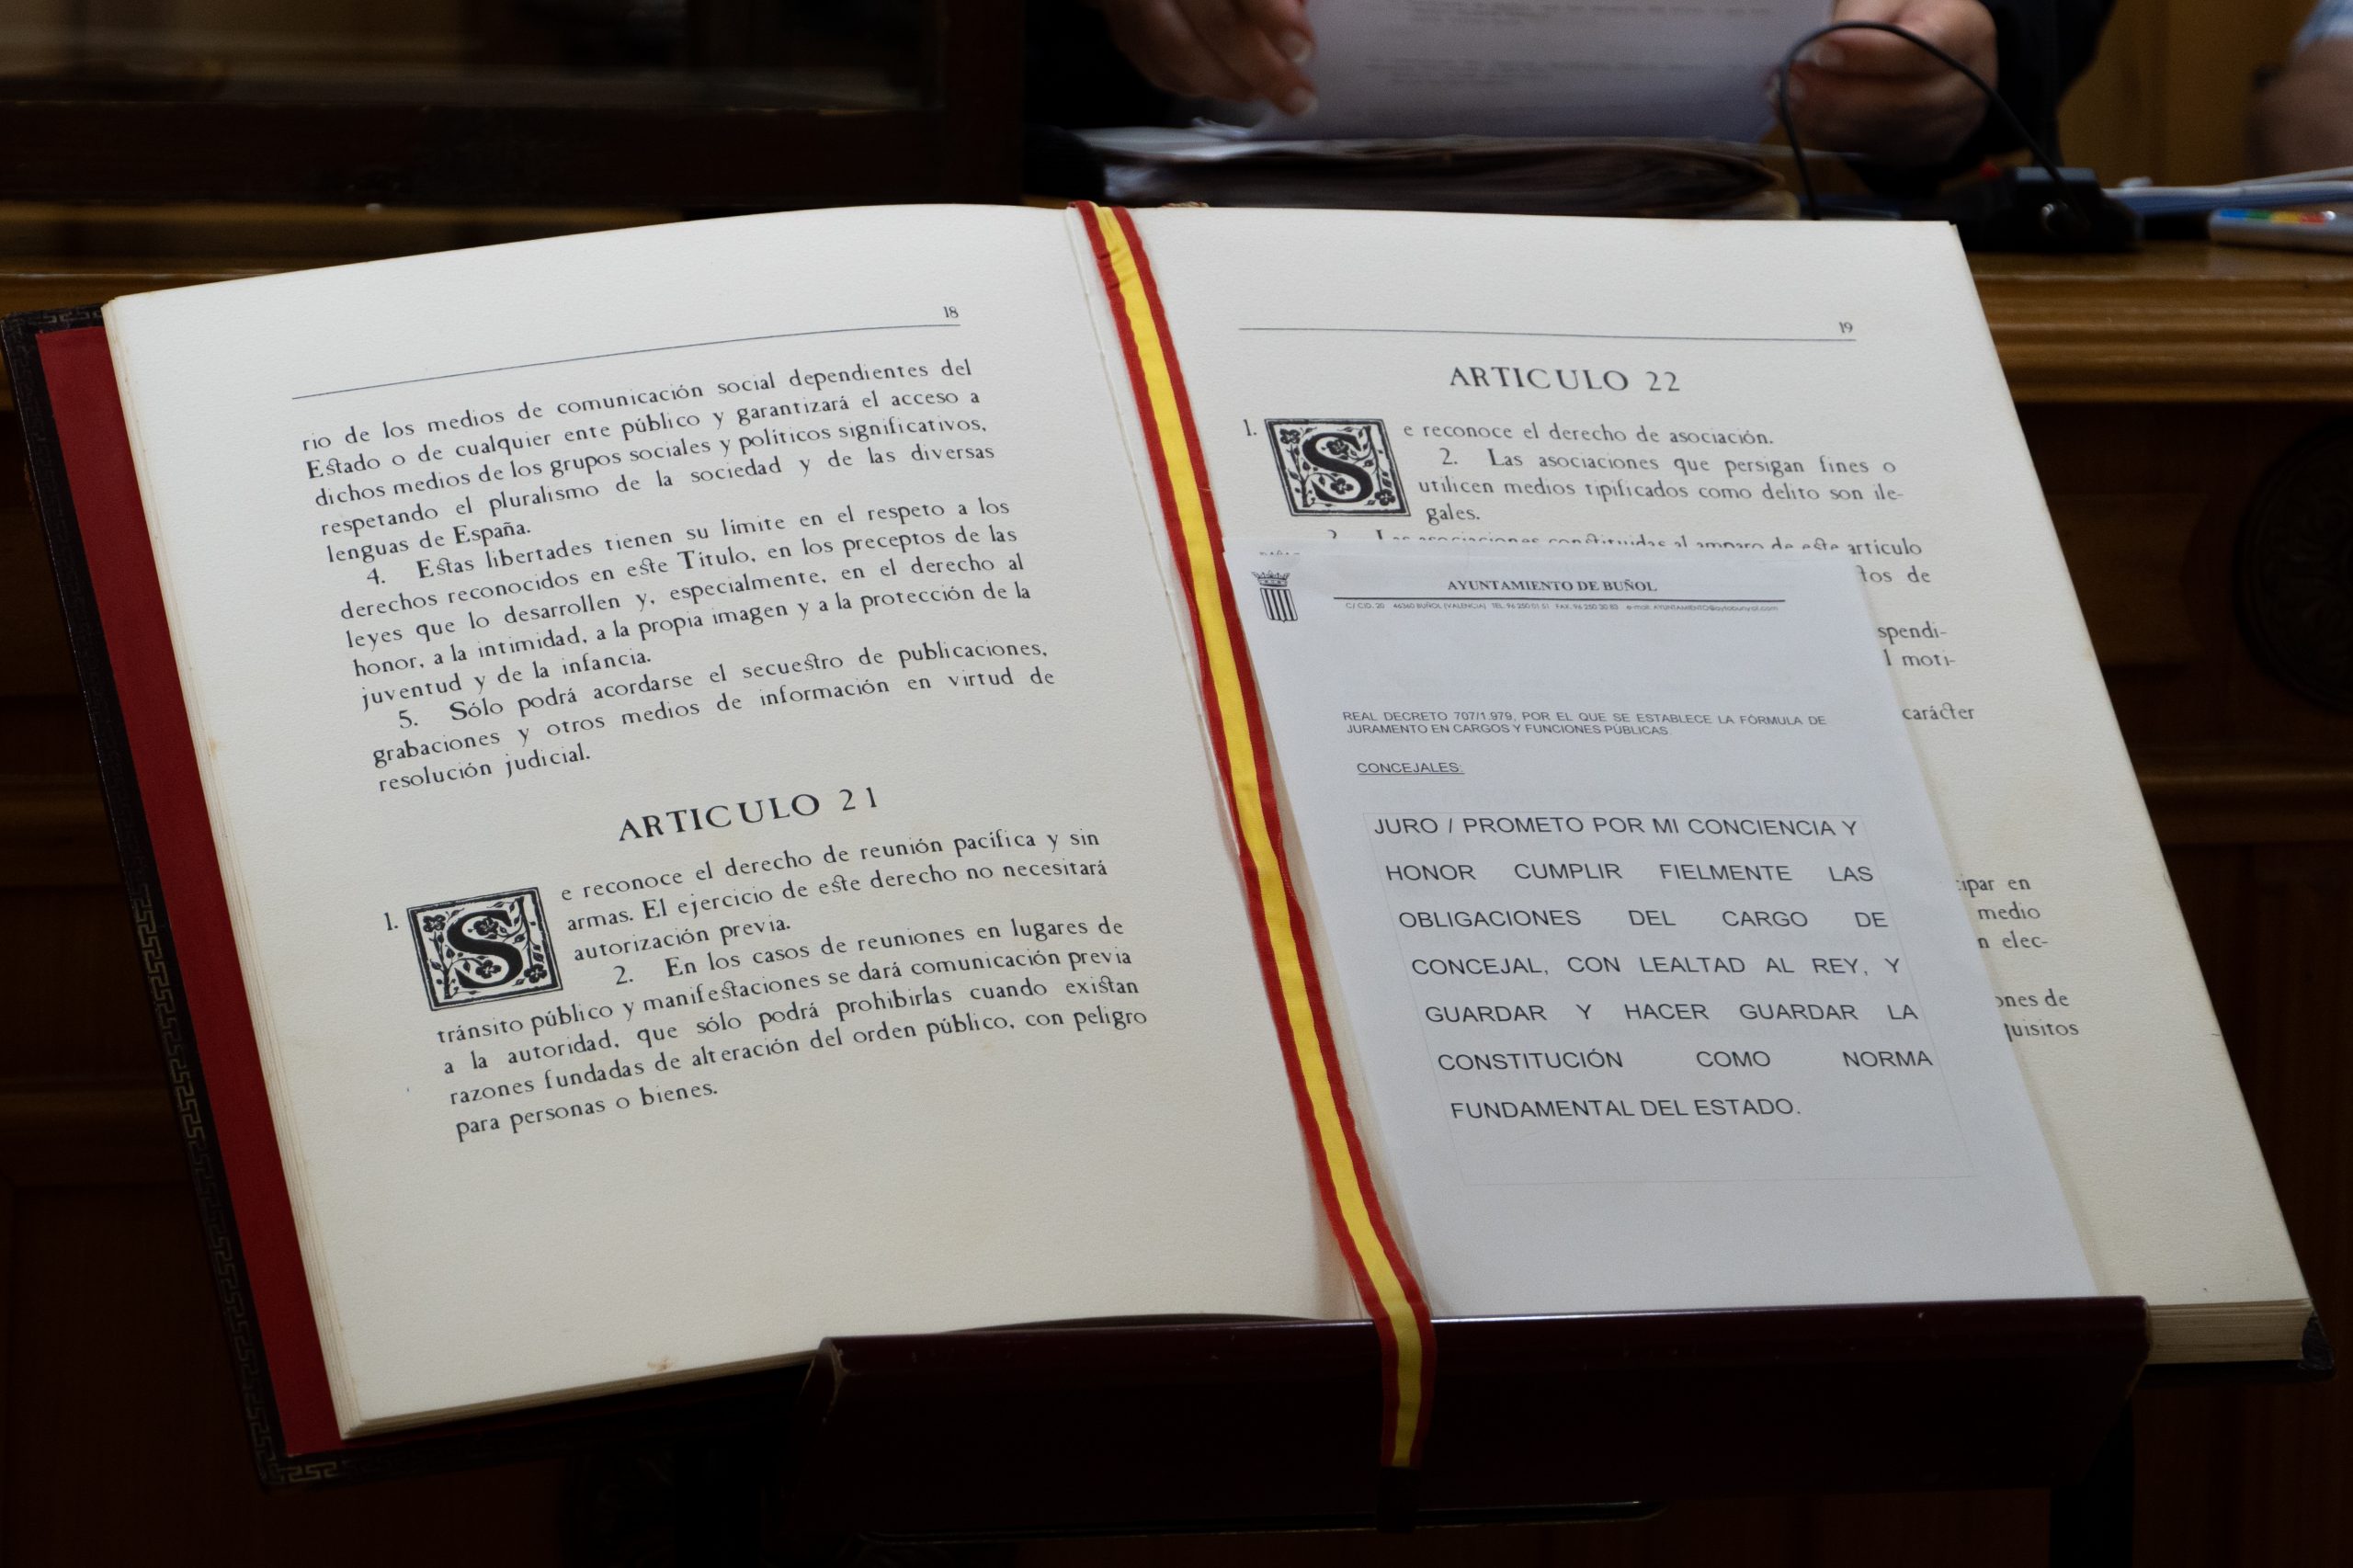 18
rio de los medios de comunicación social dependientes del
Estado o de cualquier ente público y garantizará el acceso a
dichos medios de los grupos sociales y políticos significativos,
respetando el pluralismo de la sociedad y de las diversas
lenguas de España.
4. Estas libertades tienen su límite en el respeto a los
derechos reconocidos en este Título, en los preceptos de las
leyes que lo desarrollen y, especialmente, en el derecho al
honor, a la intimidad, a la propia imagen y a la protección de la
juventud y de la infancia.
5. Sólo podrá acordarse el secuestro de publicaciones,
grabaciones y otros medios de información en virtud de
resolución judicial.
ARTICULO 21
1. Se reconoce el derecho de reunión pacífica y sin
armas. El ejercicio de este derecho no necesitará
autorización previa.
2. En los casos de reuniones en lugares de
tránsito público y manifestaciones se dará comunicación previa
a la autoridad, que sólo podrá prohibirlas cuando existan
razones fundadas de alteración del orden público, con peligro
para personas o bienes.
19
ARTICULO 22
1. Se reconoce el derecho de asociación.
2. Las asociaciones que persigan fines o
utilicen medios tipificados como delito son ile-
gales.
Las asociaciones constituidas al amparo de este artículo
de
spendi-
l moti-
carácter
cipar en
medio
n elec-
ones de
quisitos
AYUNTAMIENTO DE BUÑOL
C/ CID, 20 46360 BUÑOL (VALENCIA) TEL. 96 250 01 51 FAX. 96 250 30 83 e-mail:
REAL DECRETO 707/1.979, POR EL QUE SE ESTABLECE LA FÓRMULA DE
JURAMENTO EN CARGOS Y FUNCIONES PÚBLICAS.
CONCEJALES:
JURO / PROMETO POR MI CONCIENCIA Y
HONOR CUMPLIR FIELMENTE LAS
OBLIGACIONES DEL CARGO DE
CONCEJAL, CON LEALTAD AL REY, Y
GUARDAR Y HACER GUARDAR LA
CONSTITUCIÓN COMO NORMA
FUNDAMENTAL DEL ESTADO.